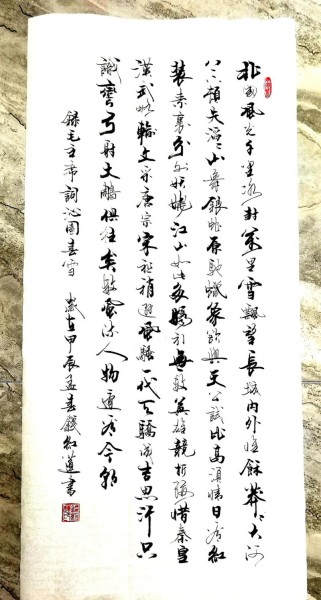 北國風光千里冰封萬里雪飄望長城內外惟餘莽〻大河
上下頓失滔〻山舞銀蛇原馳蠟象欲與天公試比高須晴日看紅
裝素裹分外妖嬈江山如此多嬌引無數英雄競折腰惜秦皇
漢武略輸文采唐宗宋祖稍遜風騷一代天驕成吉思汗只
識彎弓射大鵰俱往矣數風流人物還看今朝
錄毛主席詞沁園春雪 歲在甲辰孟春錢紅蓮書